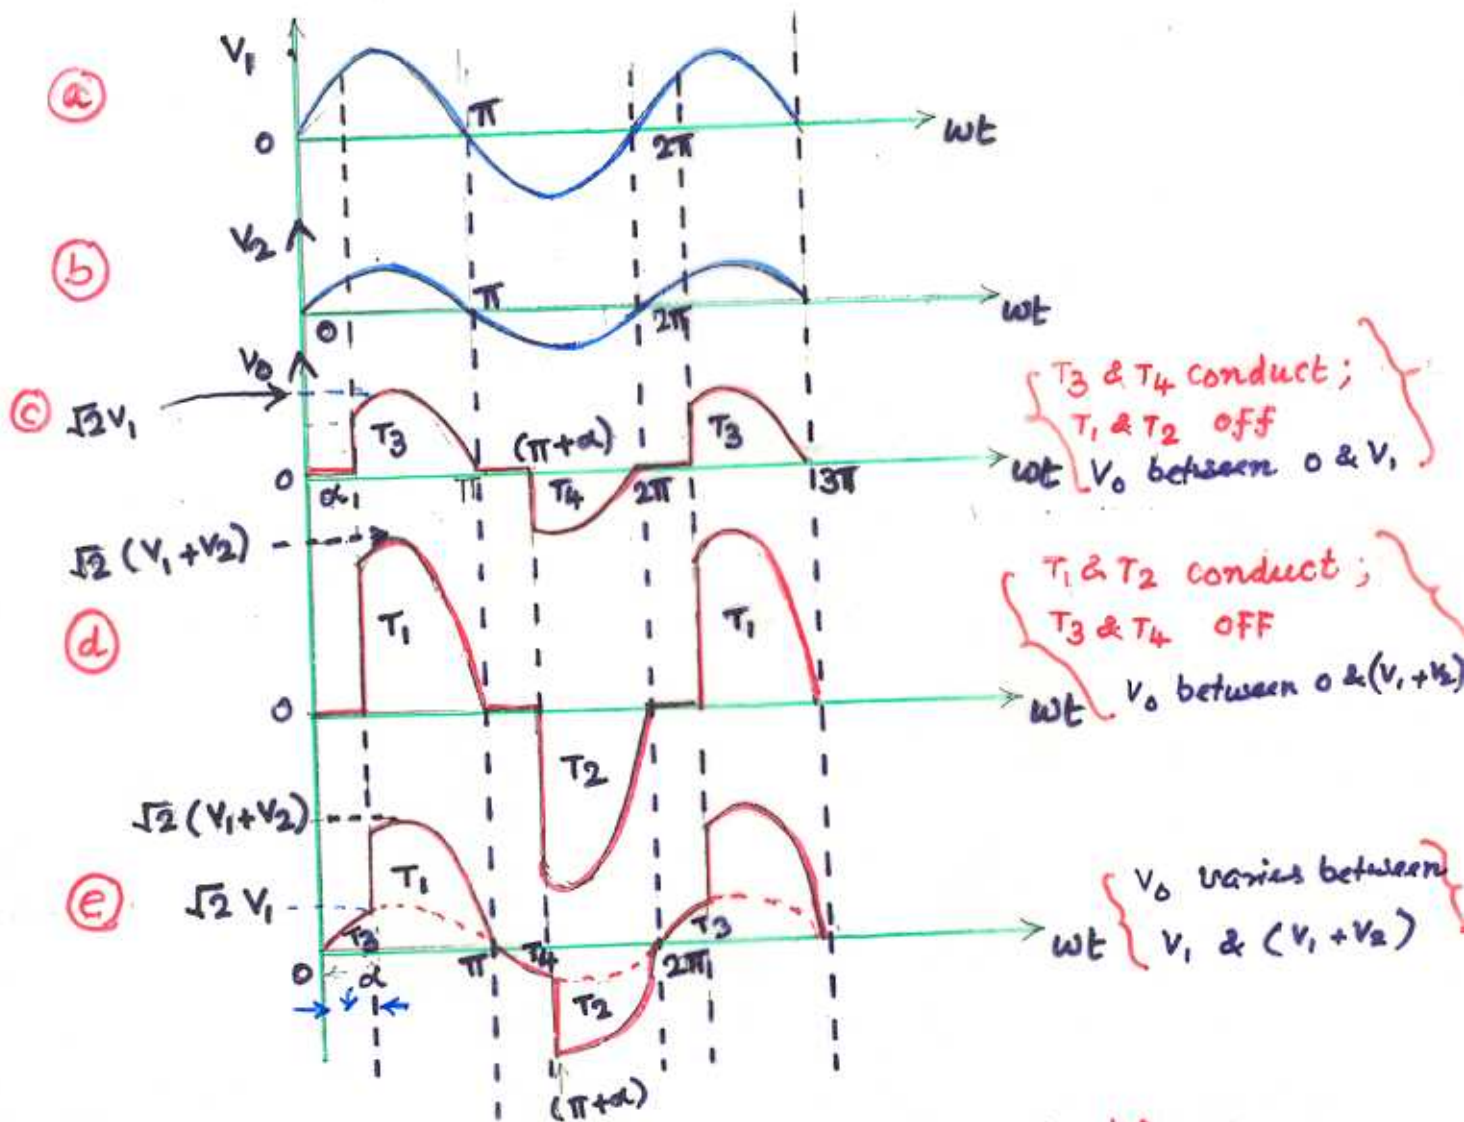 ⓐ
V₁
0
π
2π
ωt
ⓑ
V₂
0
π
2π
ωt
ⓒ
V₀
√2V₁
0
α
T₃
π
(π+α)
T₄
2π
T₃
3π
ωt
T₃ & T₄ conduct;
T₁ & T₂ off
V₀ between 0 & V₁
ⓓ
√2 (V₁+V₂)
0
T₁
T₂
T₁
ωt
T₁ & T₂ conduct;
T₃ & T₄ OFF
V₀ between 0 & (V₁+V₂)
ⓔ
√2 (V₁+V₂)
√2 V₁
0
T₃
α
T₁
π
T₄
T₂
(π+α)
2π
T₃
ωt
V₀ varies between
V₁ & (V₁+V₂)